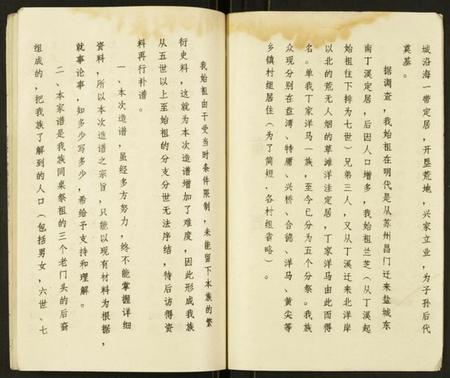 城沿海一带定居，开垦荒地，兴家立业，为子孙后代
奠基。
据调查，我始祖在明代是从苏州昌门迁来盐城东
南丁溪定居，后因人口增多，我始祖兰芝（从丁溪起
始祖往下排为七世）兄弟三人，又从丁溪迁来北洋岸
以北的荒无人烟的草滩洋洼定居，丁家洋马由此而得
名。单我丁家洋马一族，至今已分为五个分祭。我族
众现分别在盘湾、特庸、兴桥、合德、洋马、黄尖等
乡镇村组居住（为了简短，各村组省略）。
我始祖由于受当时条件限制，未能留下本族的繁
衍史料，这就为本次造谱增加了难度，因此形成我族
从五世以上至始祖的分支分世无法序结，待后访得资
料再行补谱。
一、本次造谱，虽经多方努力，终不能掌握详细
资料，所以本次造谱之宗旨，只能以现有材料为根据，
就事论事，知多少写多少，希给予支持和理解。
二、本家谱是我族同来祭祖的三个老门头的后裔
组成的，把我族了解到的人口（包括男女，六世、七